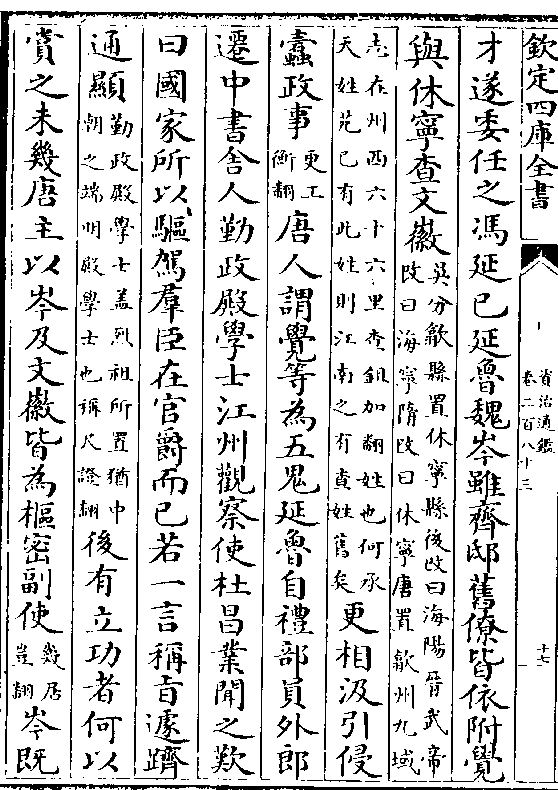 欽定四庫全書
資治通鑑
卷二百八十三
十七
才遂委任之馮延巳延魯魏岑雖齊邸舊僚皆依附覺
與休寧查文徽
吳分歙縣置休寧縣後改曰海陽晉武帝
改曰海寧隋改曰休寧唐置歙州九域
志在州西六十六里查鉏加翻姓也何承
天姓苑已有此姓則江南之有查姓舊矣
更相汲引侵
蠹政事
更工
衡翻
唐人謂覺等為五鬼延魯自禮部員外郎
遷中書舍人勤政殿學士江州觀察使杜昌業聞之歎
曰國家所以驅駕羣臣在官爵而已若一言稱㫖遽躋
通顯
勤政殿學士蓋烈祖所置猶中
朝之端明殿學士也稱尺證翻
後有立功者何以
賞之未幾唐主以岑及文徽皆為樞密副使
幾居
豈翻
岑既